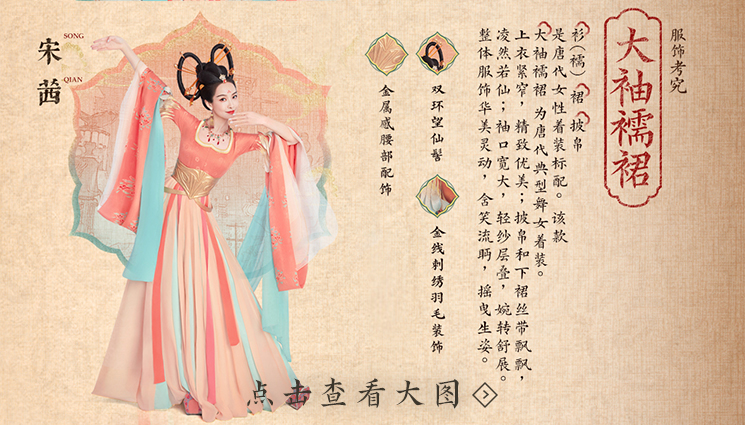 服饰考究
大袖襦裙
衫(襦) 裙 披帛
是唐代女性着装标配。该款
大袖襦裙 为唐代典型舞女着装。
上衣紧窄，精致优美；披帛和下裙丝带飘飘，
凌然若仙；袖口宽大，轻纱层叠，婉转舒展。
整体服饰华美灵动，含笑流眄，摇曳生姿。
双环望仙髻
金线刺绣羽毛装饰
金属感腰部配饰
宋茜
SONG
QIAN
点击查看大图